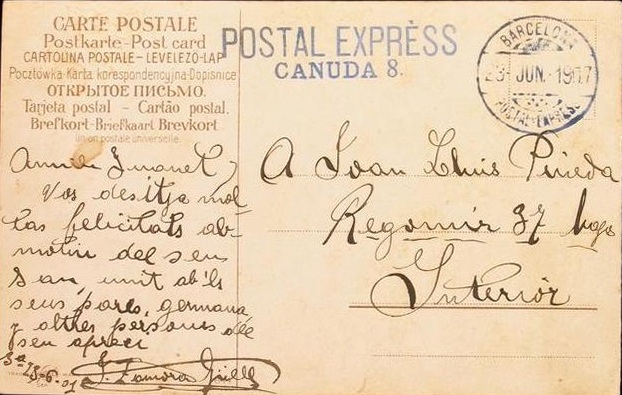 CARTE POSTALE
Postkarte - Post card
CARTOLINA POSTALE - LEVELEZÖ-LAP
Pocztówka - Karta korespondencyjna - Dopisnice
ОТКРЫТОЕ ПИСЬМО.
Tarjeta postal - Cartão postal.
Brefkort - Briefkaart Brevkort
Union postale universelle
POSTAL EXPRÈSS
CANUDA 8.
BARCELONA
23 - JUN. - 1907
POSTAL-EXPRESS
Amich Juanet
Vos desitja mol
tas felicitats ab
motiu del seu
San, unit ab'ls
seus pares, germana,
y altres persones del
seu apreci
23-6-07
J. Zamora
A Joan Lluis Pineda
Regomir 37
Interiór